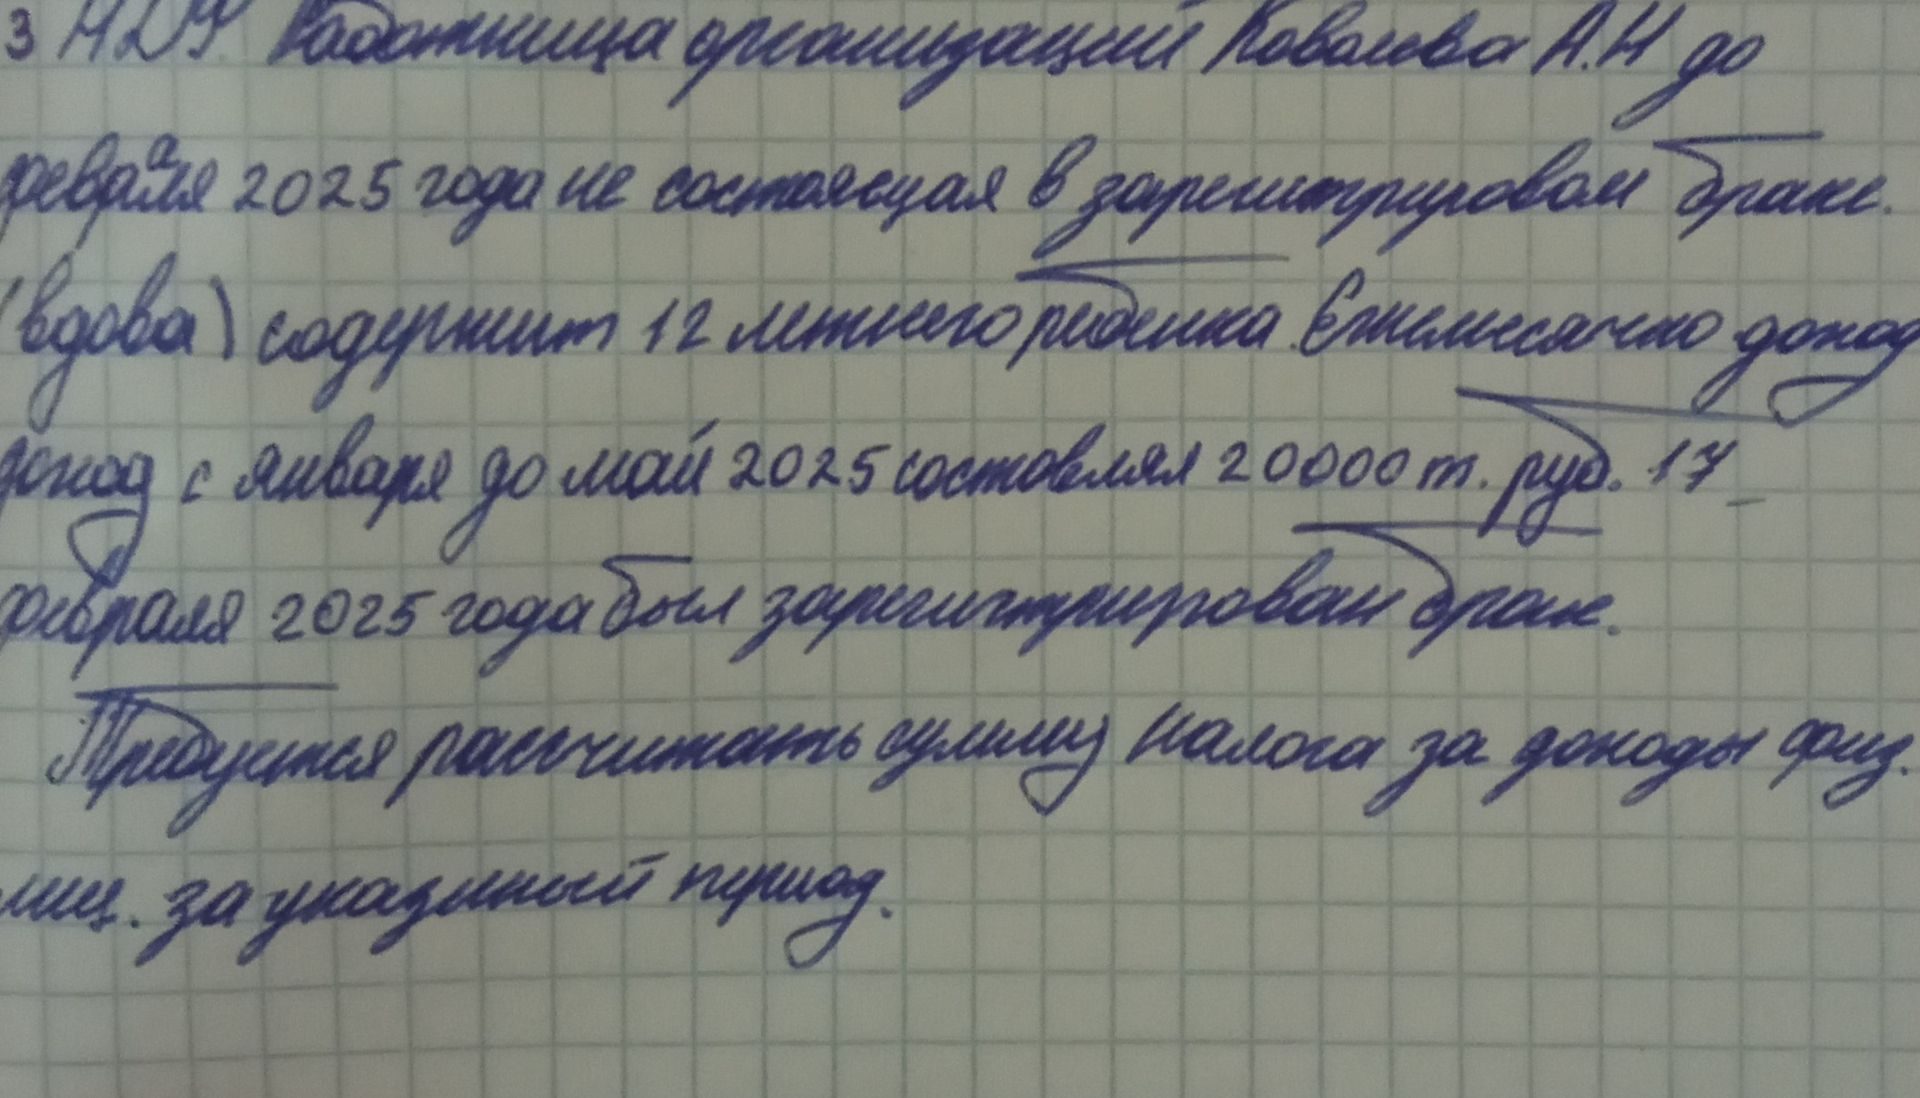 3 НДФ. Работница организаций Ковалева А.Н до
февраля 2025 года не состоящая в зарегитрировом браке.
(вдова) содержит 12 летнего ребенка. Ежемесячно доход
доход с января до май 2025 состовлял 20000 т. руб. 17_
февраля 2025 года был зарегиттрирован брак.
Требуется рассчитать сумму налога за доходы физ.
лиц. за указаный период.